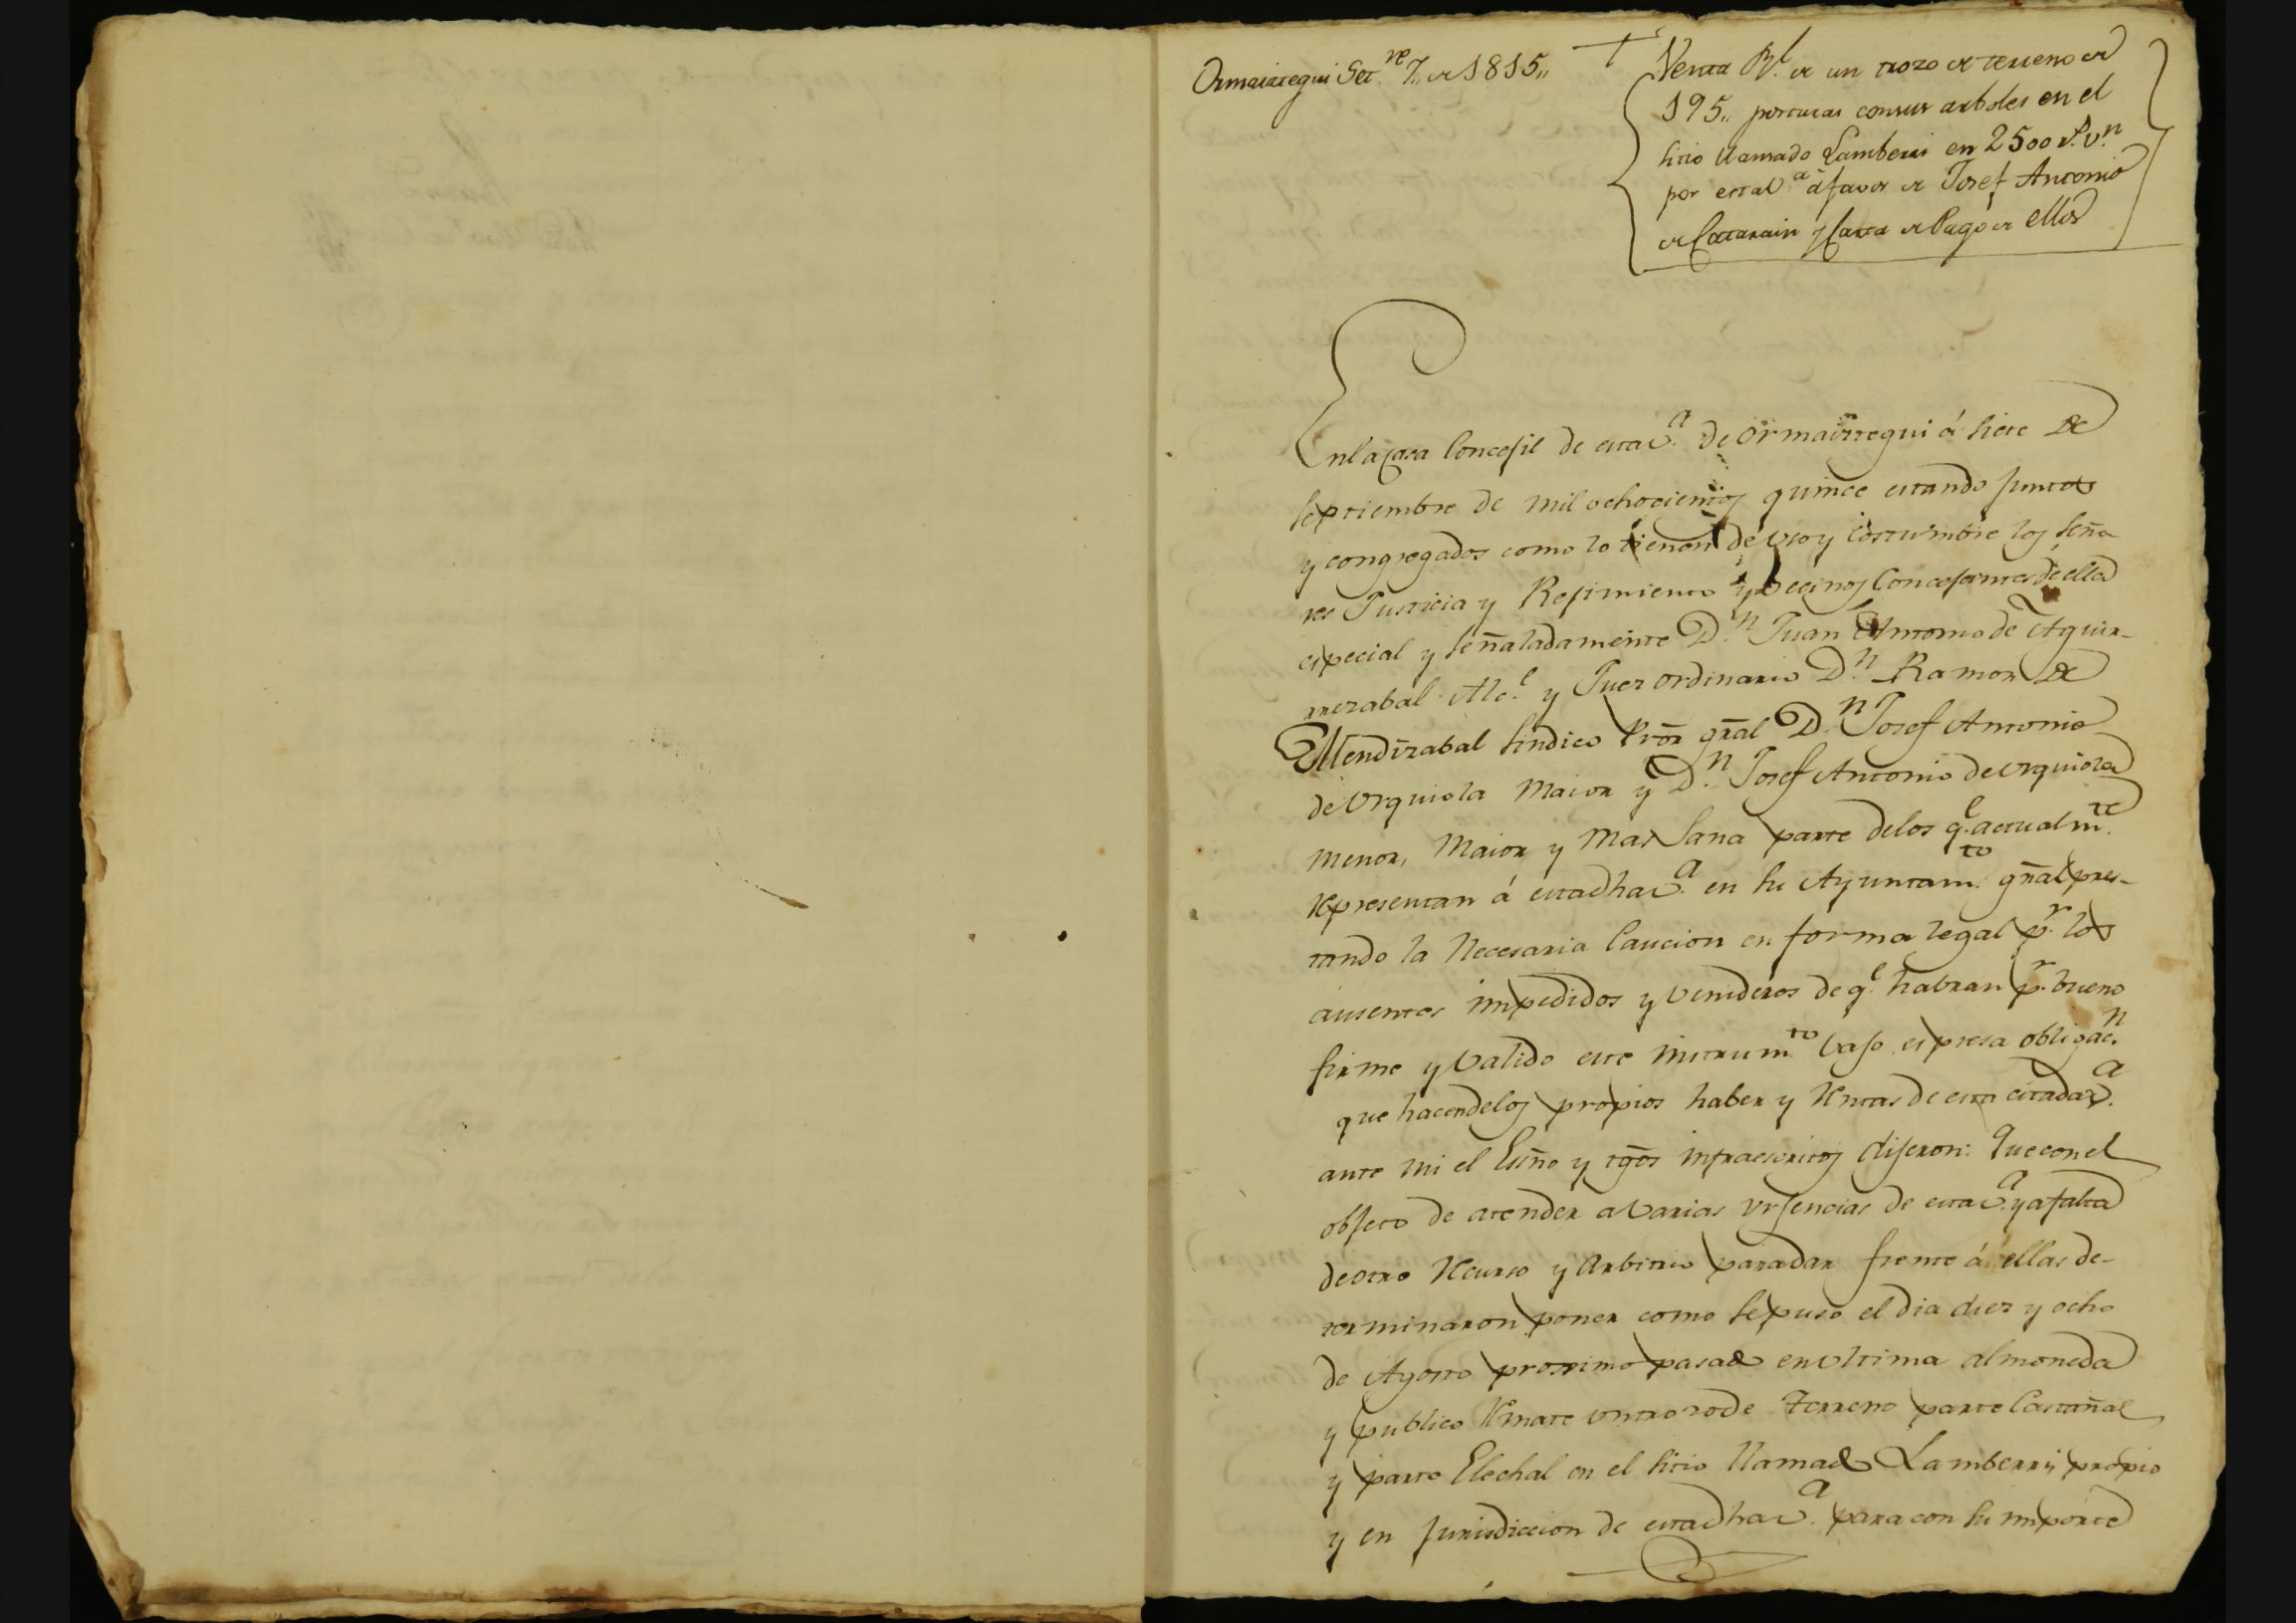 Ormaiztegui Set.re 7,, de 1815,,
†
Venta Rl. de un trozo de terreno de
195,, posturas con sus arboles en el
sitio llamado Lamberri en 2500 rs. vn.
por esta V.a á favor de Josef Antonio
de Catarain y Carta de Pago de ellos
En la Casa Concejil de esta V.a de Ormaiztegui á siete de
Septiembre de mil ochocientos quince estando juntos
y congregados como lo tienen de uso y costumbre los Seño
res Justicia y Rejimiento y vecinos Concejantes de ella
especial y señaladamente D.n Juan Antonio de Aguir-
rrezabal Alc.e y Juez ordinario D.n Ramon de
Mendizabal Sindico Pror gral D.n Josef Antonio
de Urquiola Maior y D.n Josef Antonio de Urquiola
menor, Maior y mas Sana parte de los q.e actualm.te
representan á esta dha V.a en su Ayuntam.to gñal pres-
tando la Necesaria Caucion en forma legal p.r los
ausentes impedidos y venideros de q.e habran p.r bueno
firme y valido este instrum.to bajo espresa obligac.n
que hacen de los propios haber y rentas de esta citada V.a
ante mi el Esno y tgos infraescritos dijeron: Que con el
objeto de atender a varias urjencias de esta V.a y a falta
de otro recurso y Arbitrio para dar frente á ellas de-
terminaron poner como se puso el dia diez y ocho
de Agosto prossimo pasado en ultima almoneda
y publico remate un trozo de Terreno parte Castañal
y parte Elechal en el sitio llamado Lamberri, propio
y en jurisdiccion de esta dha V.a para con su importe